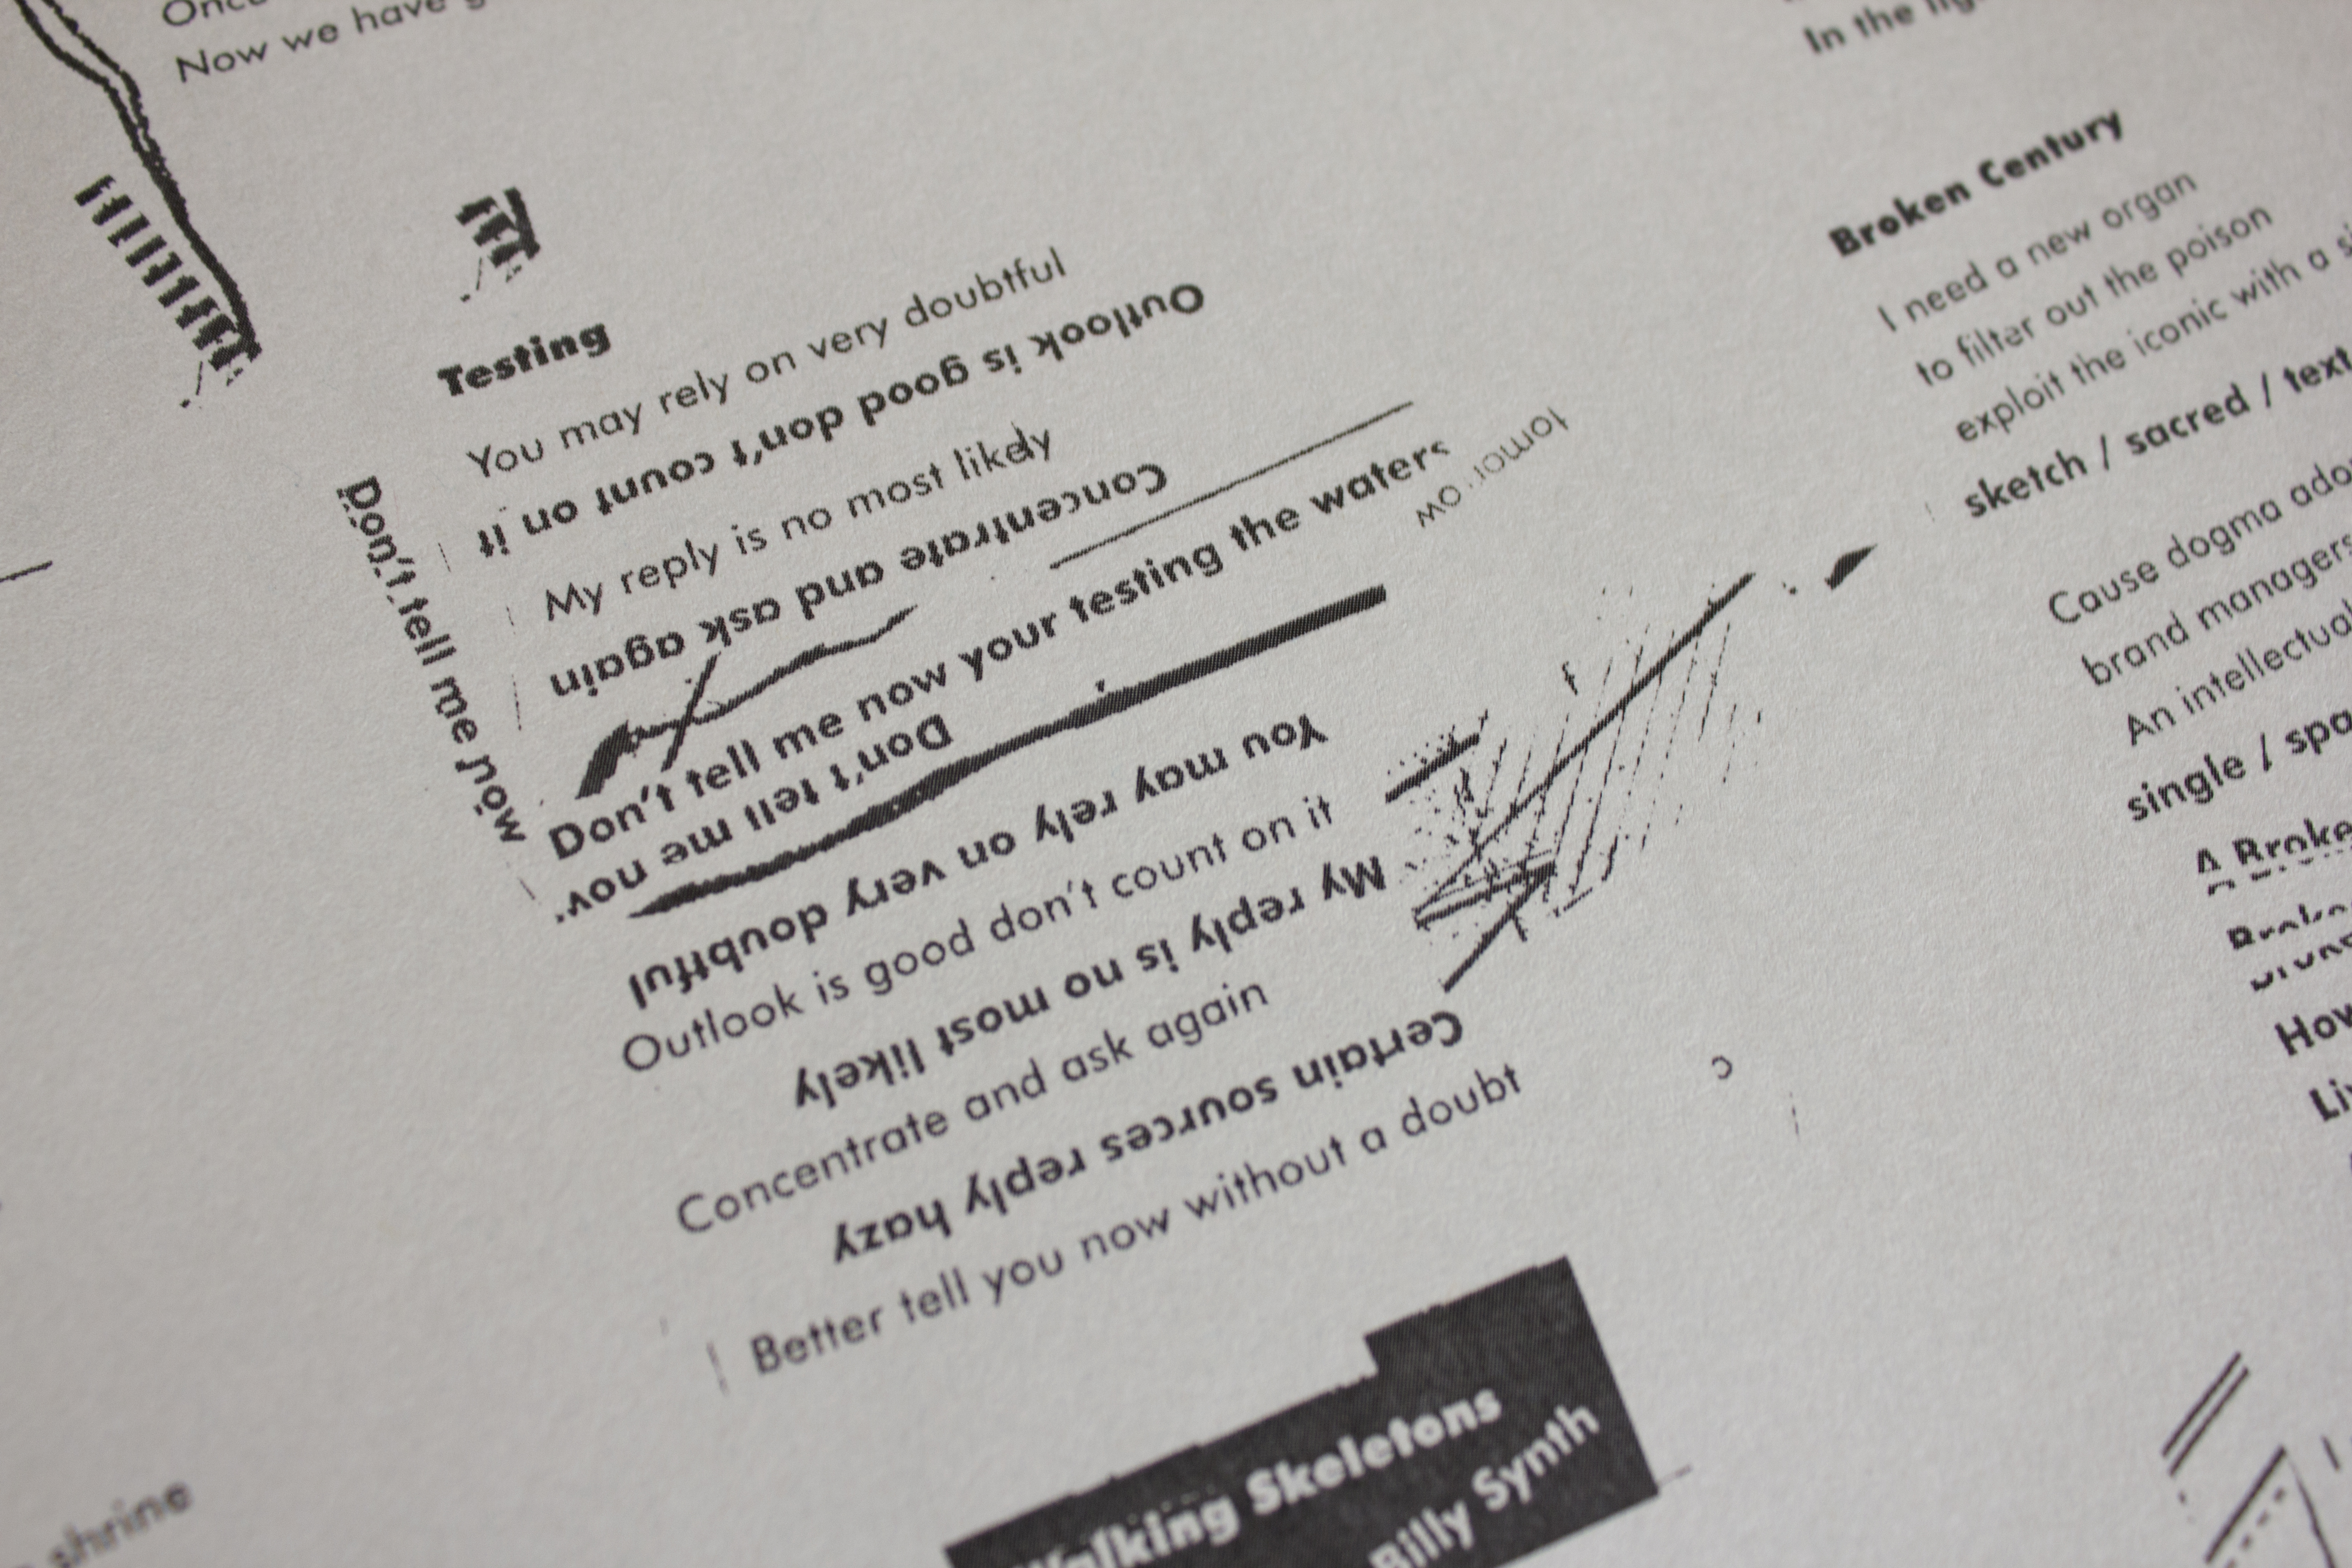 Now we have
In the
Testing
You may rely on very doubtful
Outlook is good don't count on it
My reply is no most likely
Concentrate and ask again
Don't tell me now your testing the waters
Don't tell me now
Don't tell me now
You may rely on very doubtful
Outlook is good don't count on it
My reply is no most likely
Concentrate and ask again
Certain sources reply hazy
Better tell you now without a doubt
Walking Skeletons
Billy Synth
shrine
Broken Century
I need a new organ
to filter out the poison
exploit the iconic with a
sketch / sacred / text
Cause dogma
brand managers
An intellectual
single /
A Broke